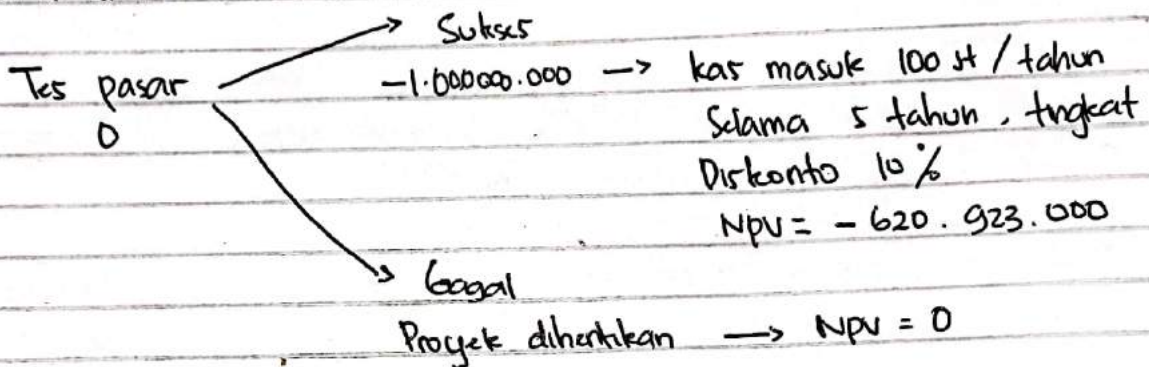 Sukses
Tes pasar
-1.000000.000 → kas masuk 100 jt / tahun
0
Selama 5 tahun, tingkat
Diskonto 10%
NPV = - 620.923.000
Gagal
Proyek dihentikan → NPV = 0